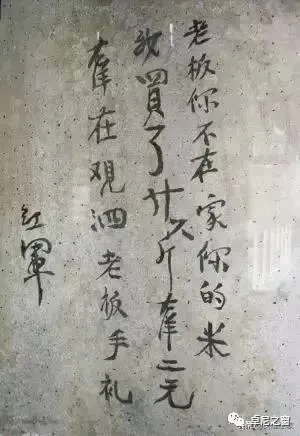 老板你不在家你的米
我買了廿六斤羍二元
羍在观泗老板手礼
红軍
卓尼之窗